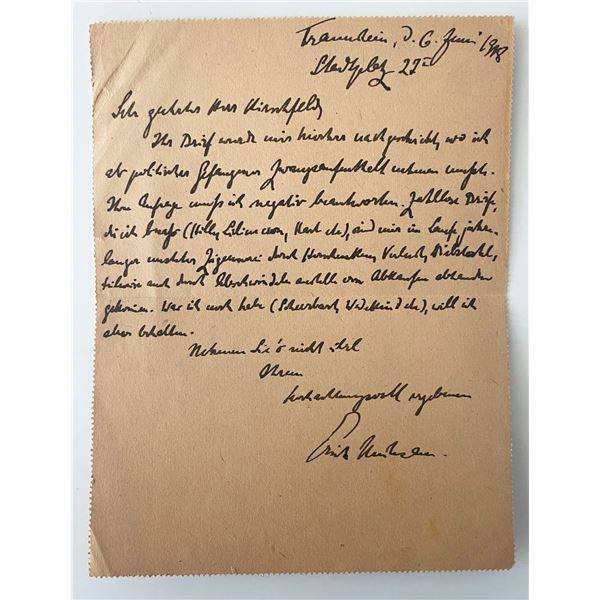 Traunstein, d. 6. Juni 1918
Stadtplatz 27 II
Sehr geehrter Herr Hirschfeld,
Ihr Brief wurde mir hierher nachgeschickt, wo ich
als politischer Gefangener Zwangsaufenthalt nehmen mußte.
Ihre Anfrage muß ich negativ beantworten. Zahllose Briefe,
die ich besaß (Hille, Liliencron, Hart etc), sind mir im Laufe jahre-
langer unsteter Zigeunerei durch Verlust, Diebstahl,
teilweise auch durch Abkaufen abhanden
gekommen. Was ich noch habe (Scheerbart, Wedekind etc), will ich
aber behalten.
Nehmen Sie's nicht übel
Ihrem
hochachtungsvoll ergebenen
Erich Mühsam.